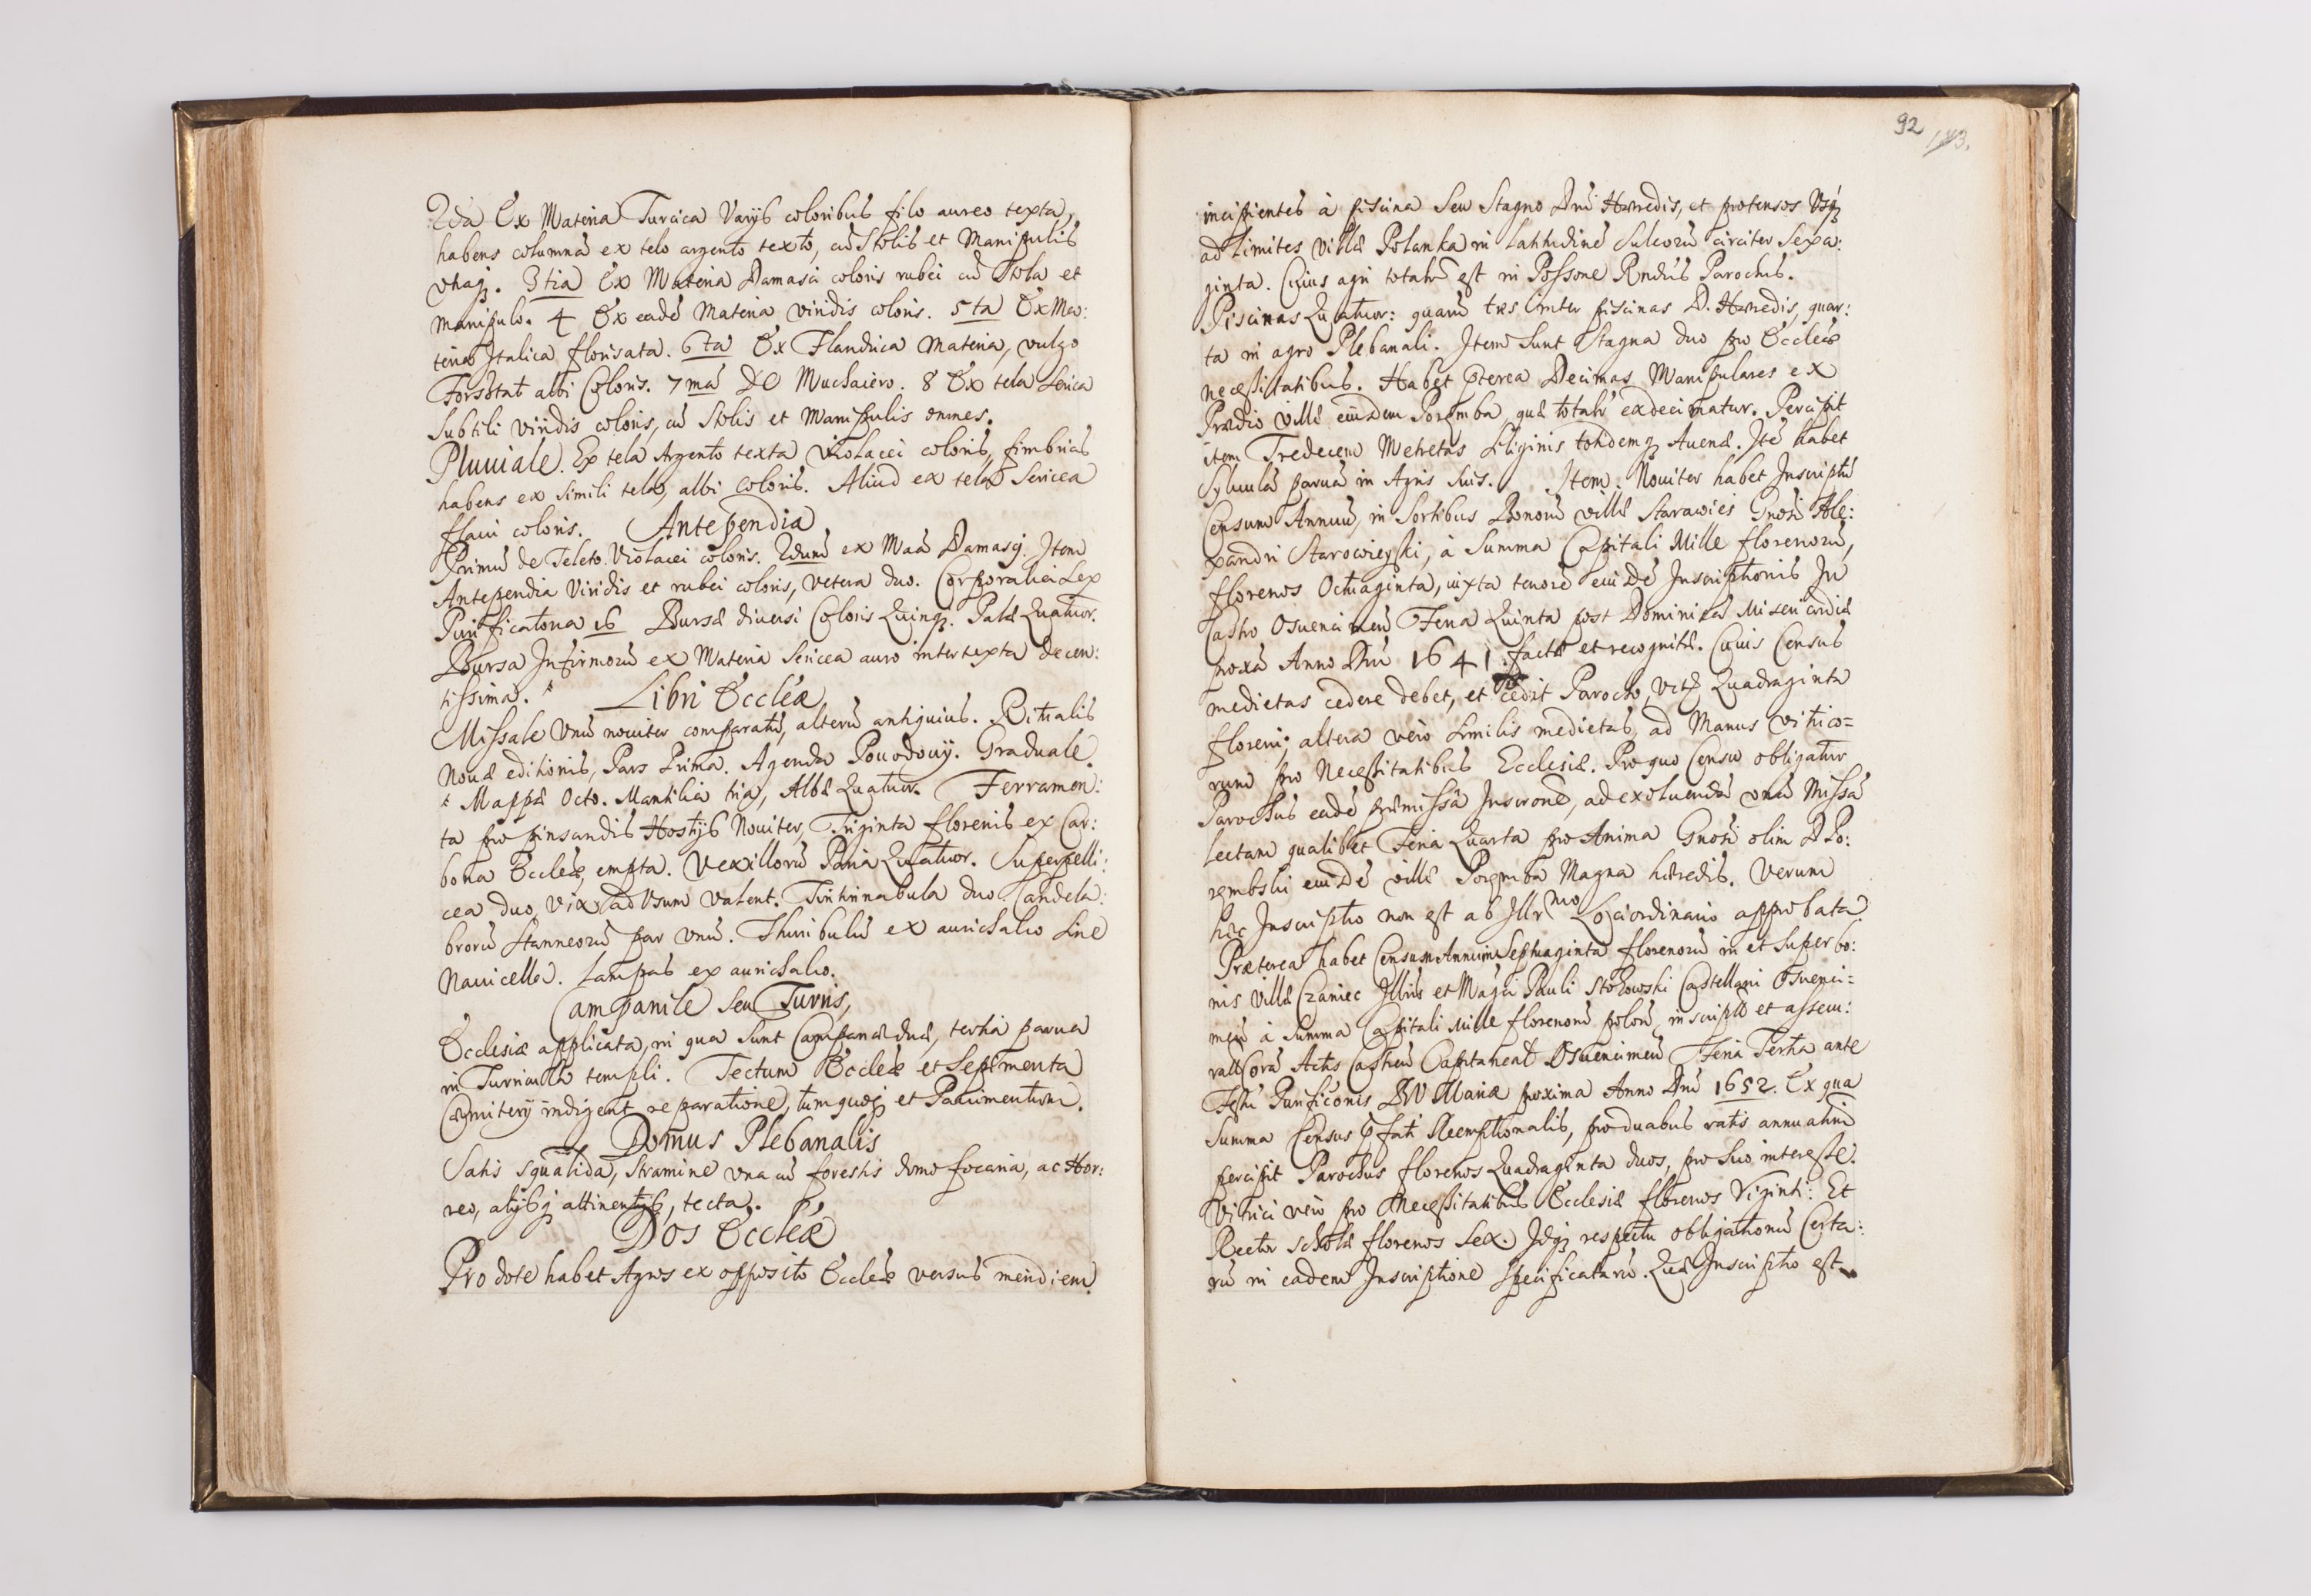 2da Ex Materia Turcica Varijs coloribus filo aureo texta,
habens columnã ex telo argento texto, cũ Stolis et Manipulis
vtraq. 3tia Ex Materia Damasci coloris rubei cũ Stola et
Manipulo. 4 Ex eadẽ Materia viridis coloris. 5ta Ex Ma:
teria Italica florisata. 6ta Ex Flandrica Materia, vulgo
Forsstat albi Coloris. 7ma De Muchaiero. 8 Ex tela Serica
Subtili viridis coloris, cũ Stolis et Manipulis omnes.
Pluuiale. Ex tela Argento texta violacei coloris, fimbrias
habens ex simili tela, albi coloris. Aliud ex tela Sericea
flaui coloris. Antependia
Primũ de Teleto Violacei coloris. 2dum ex Maã Damasij. Item
Antependia Viridis et rubei coloris, vetera duo. Corporalia Sex
Purificatoria 16 Bursæ diuersi Coloris Quinq. Palæ Quatuor.
Bursa Infirmorũ ex Materia Sericea auro intertexta decen:
tissima. * Libri Eccleæ
Missale Vnũ nouiter comparatũ, alterũ antiquius. Ritualis
Nouæ editionis, Pars Prima. Agenda Pouodouij. Graduale.
* Mappæ Octo. Mantilia tria, Albæ Quatuor. Ferramen:
ta pro pinsandis Hostijs Nouiter, Triginta florenis ex Car:
bona Eccleæ empta. Vexillorũ Paria Quatuor. Superpelli:
cea duo, vix ad Vsum valent. Tintinnabula duo Candela:
brorũ Stanneorũ par vnũ. Thuribulũ ex aurichalco sine
Nauicella. Lampas ex aurichalco.
Campanile seu Turris,
Ecclesiæ applicata, in qua sunt Campanæ duæ, tertia parua
in Turricula templi. Tectum Eccleæ et Sepimenta
Cæmiterij indigent reparatione, tum quoq et Pauimentum.
Domus Plebanalis
Satis squalida, Stramine vna cũ forestis domo focaria, ac Hor:
reo, alijsq attinentijs, tecta.
Dos Eccleæ
Pro dote habet Agros ex opposito Eccleæ versus meridiem
92 183.
incipientes à piscina Seu Stagno Dnĩ Hæredis, et protensos Vsq
ad Limites villæ Polanka in Latitudine Sulcorũ circiter Sexa:
ginta. Cuius agri totalr est in Possone Rndus Parochus.
Piscinas Quatuor: quarũ tres inter piscinas D. Hæredis, quar:
ta in agro Plebanali. Item Sunt Stagna duo pro Eccleæ
necessitatibus. Habet pterea Decimas Manipulares ex
Prædio villæ eiusdem Poremba, quæ totalr exdecimatur. Percipit
item Tredecem Metretas Siliginis totidemq Auenæ. Itẽ habet
Syluulã paruã in Agris suis. Item. Nouiter habet Inscriptũ
Censum Annuũ, in Sortibus Bonorũ villæ Starawies Gnosi Ale:
xandri Starowieyski, à Summa Capitali Mille florenorũ,
florenos Octuaginta, iuxta tenorẽ eiusdẽ Inscriptionis In
Castro Osuencimeñ Feria Quinta post Dominicã Misericordiæ
proxã Anno Dnĩ 1641. factæ et recognitæ. Cuius Census
medietas cedere debet, et cedit Parocho, vtpote Quadraginta
floreni; altera vero similis medietas, ad Manus vitrico=
rum pro Necessitatibus Ecclesiæ. Pro quo Censu obligatur
Parochus eadẽ præmissã Inscrone, ad exoluendã vnã Missã
lectam qualibet Feria Quarta pro Anima Gnosi olim D Po:
rembski eiusdẽ villæ Poremba Magna hæredis. Verum
hæc Inscriptio non est ab Illrmo Loci ordinario approbata.
Præterea habet Censum Annuũ Septuaginta florenorũ in et super bo:
nis villæ Czaniec Illris et Magci Pauli Stokowski Castellani Osuenci=
meñ à Summa Capitali Mille florenorũ polon, inscripto et asseu:
rato Corã Actis Castreñ Capitaneal Osuencimeñ Feria Tertia ante
Festũ Purificonis BV Mariæ proxima Anno Dnĩ 1652. Ex qua
Summa Census pfati Reemptionalis, pro duabus ratis annuatim
percipit Parochus florenos Quadraginta duos, pro suo interesse.
Vitrici vero pro Necessitatibus Ecclesiæ florenos Viginti: Et
Rector Scholæ florenos Sex. Idq respectu obligationũ Certa:
rũ in eadem Inscriptione specificatarũ. Quæ Inscriptio est